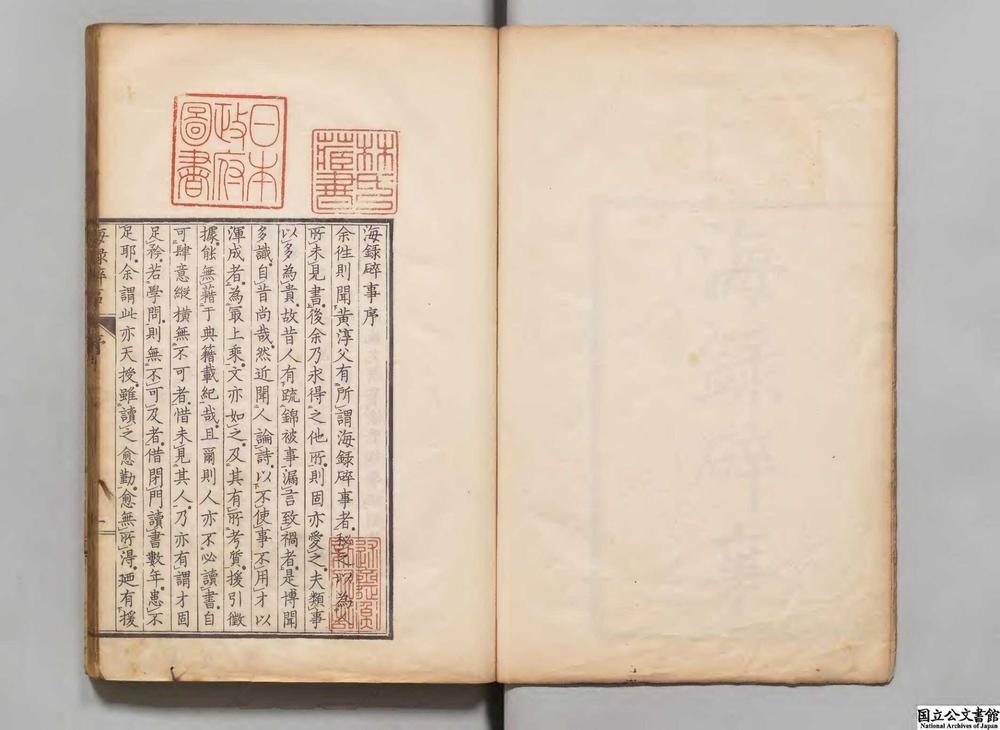 海錄碎事序
余往則聞黃淳父有所謂海錄碎事者秘之以為人
所未見書後余乃求得之他所則固亦愛之夫類事
以多為貴故昔人有疏錦被事漏言致禍者是博聞
多識自昔尚哉然近聞人論詩以不使事不用才以
渾成者為最上乘文亦如之及其有所考質援引徵
據能無藉于典籍載紀哉且爾則人亦不必讀書自
可肆意縱橫無不可者惜未見其人乃亦有謂才固
足矜若學問則無不可及者借閉門讀書數年患不
足耶余謂此亦天授雖讀之愈勤愈無所得廼有援
海錄碎事 序
一
日本政府圖書
林氏藏書
国立公文書館
National Archives of Japan